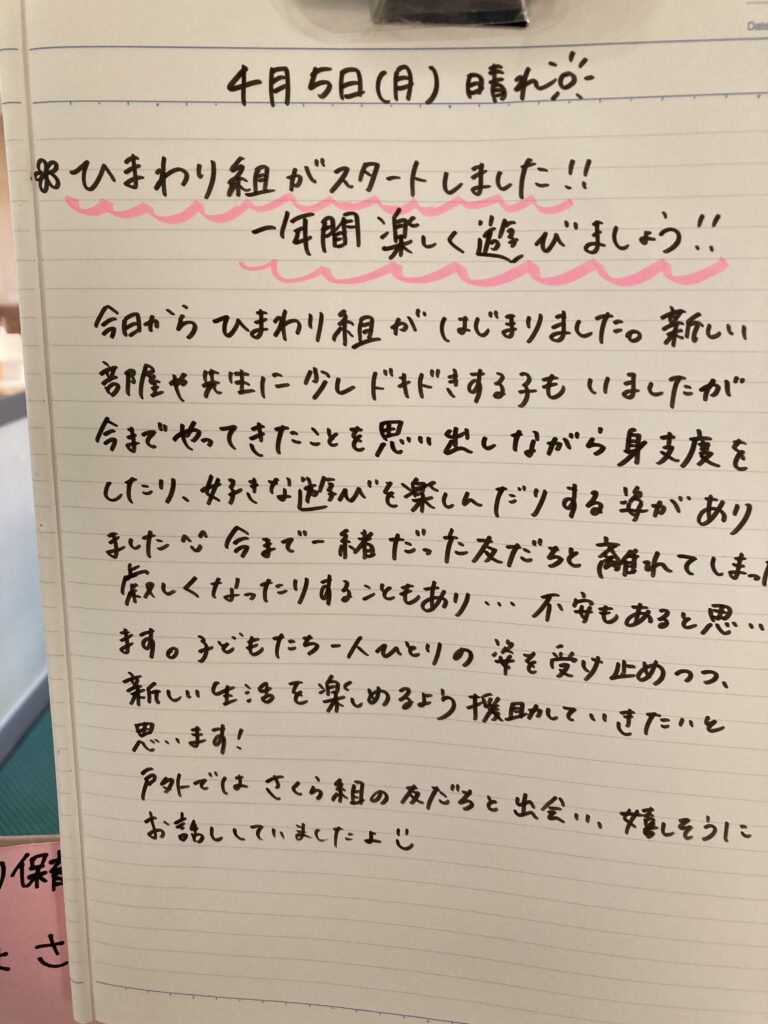 Date
4月5日(月) 晴れ
ひまわり組がスタートしました!!
一年間 楽しく遊びましょう!!
今日から ひまわり組が はじまりました。新しい
部屋や先生に少しドキドキする子も いましたが
今までやってきたことを思い出しながら身支度を
したり、好きな遊びを楽しんだりする姿があり
ました 今まで一緒だった友だちと離れてしまっ
寂しくなったりすることもあり… 不安もあると思い
ます。子どもたち一人ひとりの姿を受け止めつつ、
新しい生活を楽しめるよう援助していきたいと
思います!
戸外では さくら組の友だちと出会い、嬉しそうに
お話ししていましたよ
保育
さ